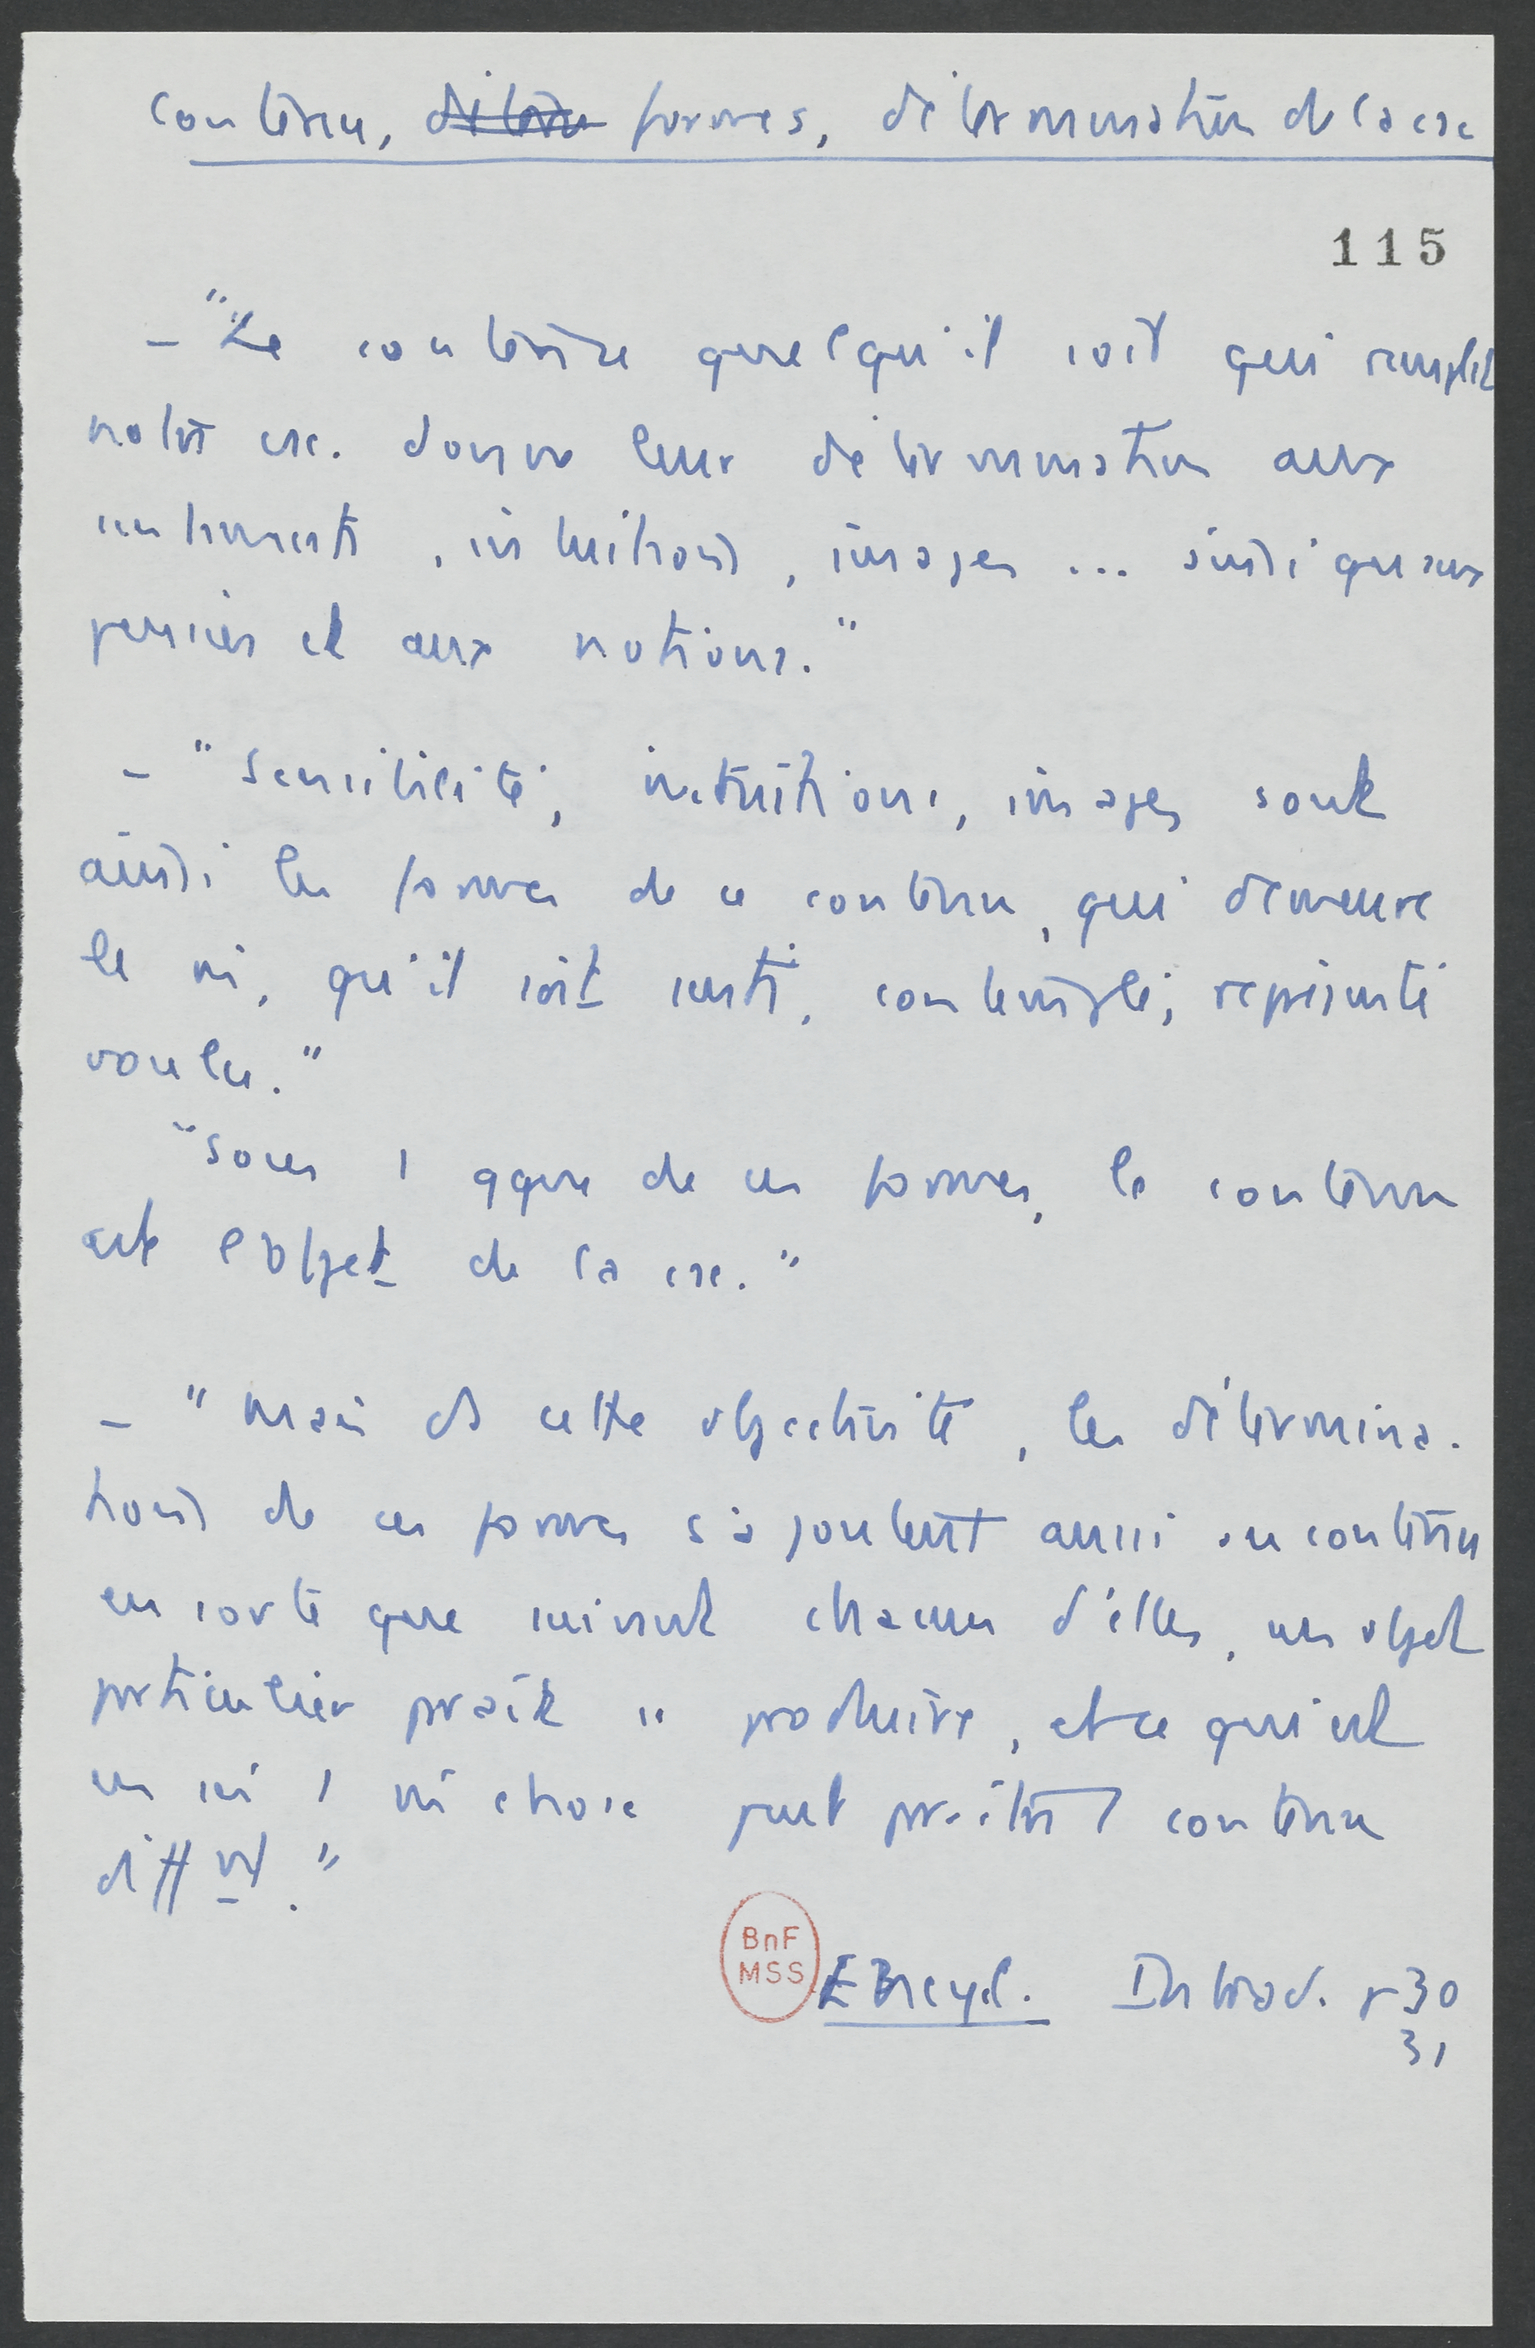 contenu, formes, détermination de la csc
115
– "Le contenu quelqu'il soit qui remplit
notre csc. donne leur détermination aux
sentiments, intuitions, images ... ainsi qu'aux
pensées et aux notions."
– "Sensibilité, intuitions, images sont
ainsi les formes de ce contenu, qui demeure
le m̂, qu'il soit senti, contemplé, représenté
voulu."
"Sous 1 qque de ces formes, le contenu
est l'objet de la csc."
– "Mais ds cette objectivité, les détermina-
tions de ces formes s'ajoutent aussi au contenu
en sorte que suivant chacune d'elles, un objet
particulier paraît se produire, et ce qui est
en soi 1 m̂ chose peut paraître 1 contenu
différent."
BnF
MSS
Encycl. Introd. p 30
31